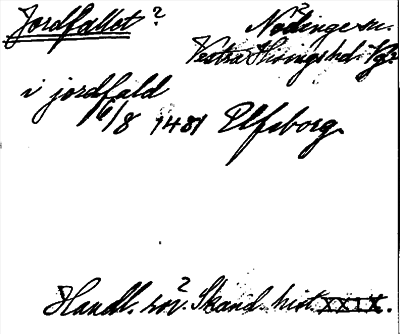 Jordfallet ? Nödinge sn.
Vestra Hisings hd. Vg.
i jordfald
16/8 1481 Elfsborg.
Handl. rör. Skand. hist. XXIX.